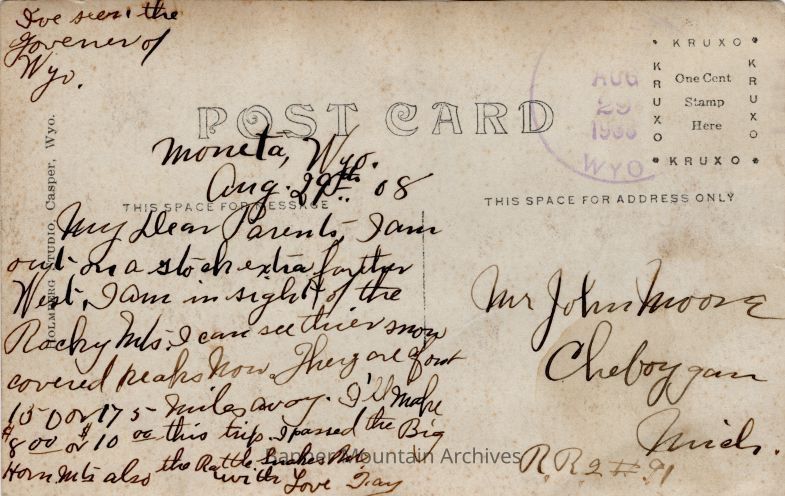 I've seen the
Govener of
Wyo.
POST CARD
KRUXO
KRUXO
One Cent
Stamp
Here
KRUXO
KRUXO
AUG
29
WYO
HOLMBERG STUDIO, Casper, Wyo.
Moneta, Wyo.
Aug. 29th 08
THIS SPACE FOR MESSAGE
THIS SPACE FOR ADDRESS ONLY
My Dear Parents, I am
out on a stock extra farther
West, I am in sight of the
Rocky Mts. I can see thier snow
covered peaks now. They are about
150 or 175 miles away. I'll make
$8 00 or $10 00 this trip. I passed the Big
Horn Mts also the Rattle Snakes Mts.
with Love Fay
Mr John Moore
Cheboygan
Mich.
R.R. 2 # 91
Banner Mountain Archives